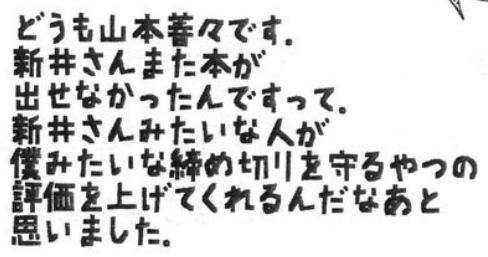 どうも山本善々です.
新井さんまた本が
出せなかったんですって.
新井さんみたいな人が
僕みたいな締め切りを守るやつの
評価を上げてくれるんだなあと
思いました.